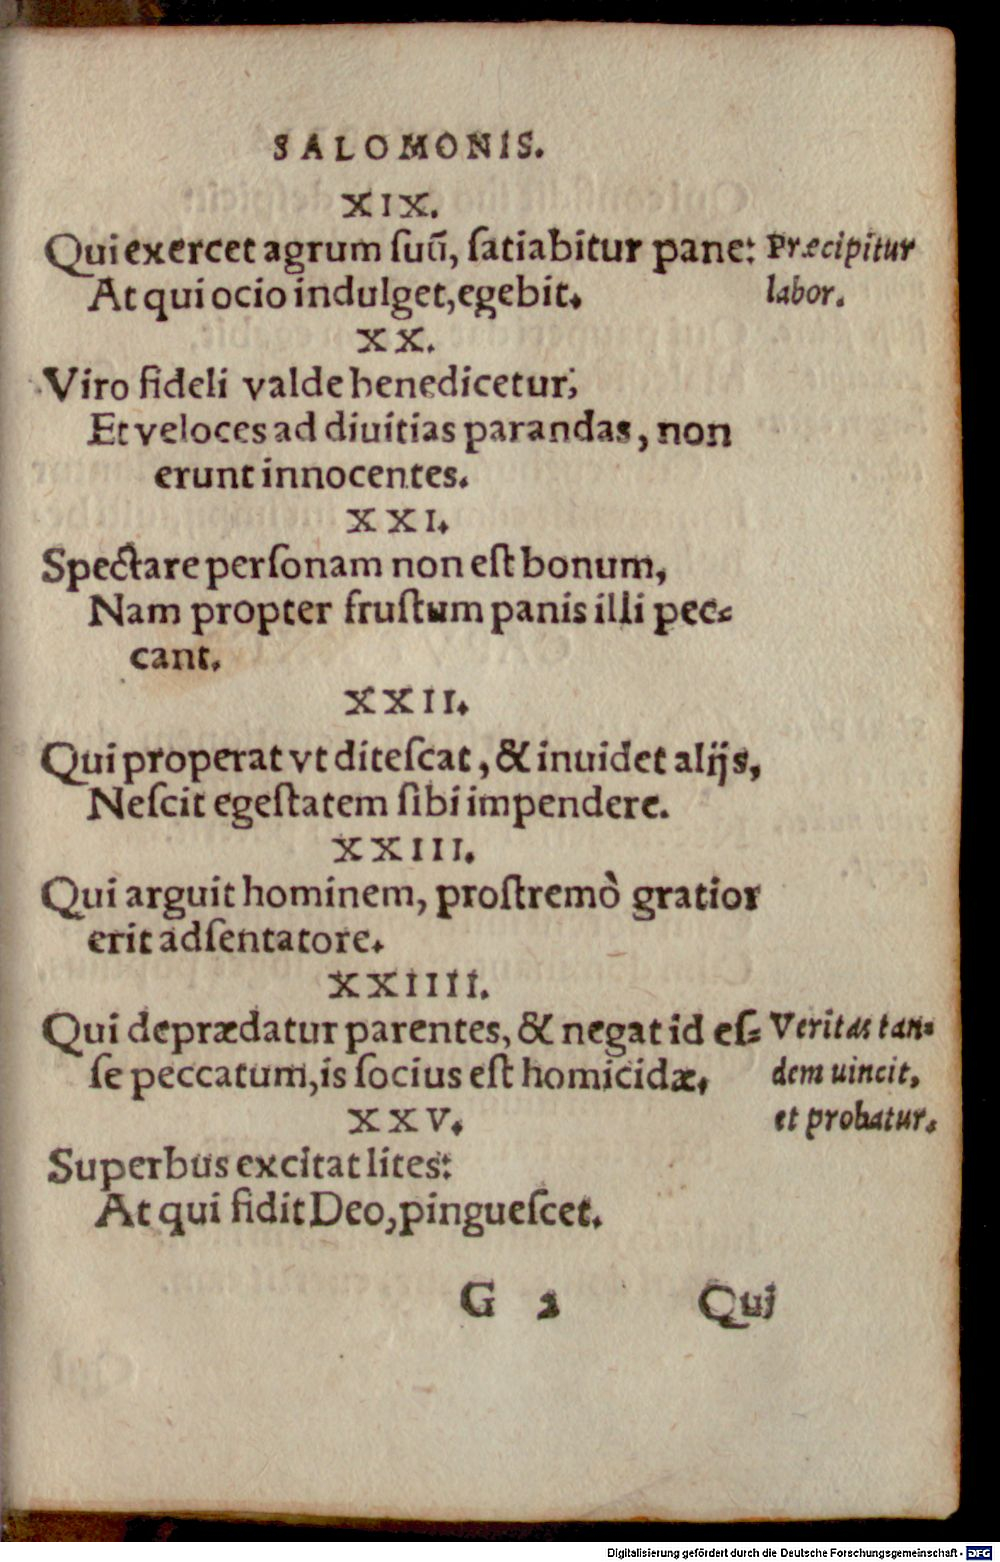 SALOMONIS.
XIX.
Qui exercet agrum ſuū, ſatiabitur pane: Præcipitur
At qui ocio indulget, egebit. labor.
XX.
Viro fideli valde benedicetur;
Et veloces ad diuitias parandas, non
erunt innocentes.
XXI.
Spectare perſonam non eſt bonum,
Nam propter fruſtum panis illi pec⸗
cant.
XXII.
Qui properat vt diteſcat, & inuidet alijs,
Neſcit egeſtatem ſibi impendere.
XXIII.
Qui arguit hominem, proſtremò gratior
erit adſentatore.
XXIIII.
Qui deprædatur parentes, & negat id eſ⸗ Veritas tan⸗
ſe peccatum, is ſocius eſt homicidæ. dem uincit,
XXV. et probatur.
Superbus excitat lites:
At qui fidit Deo, pingueſcet.
G 2 Qui
Digitalisierung gefördert durch die Deutsche Forschungsgemeinschaft - DFG